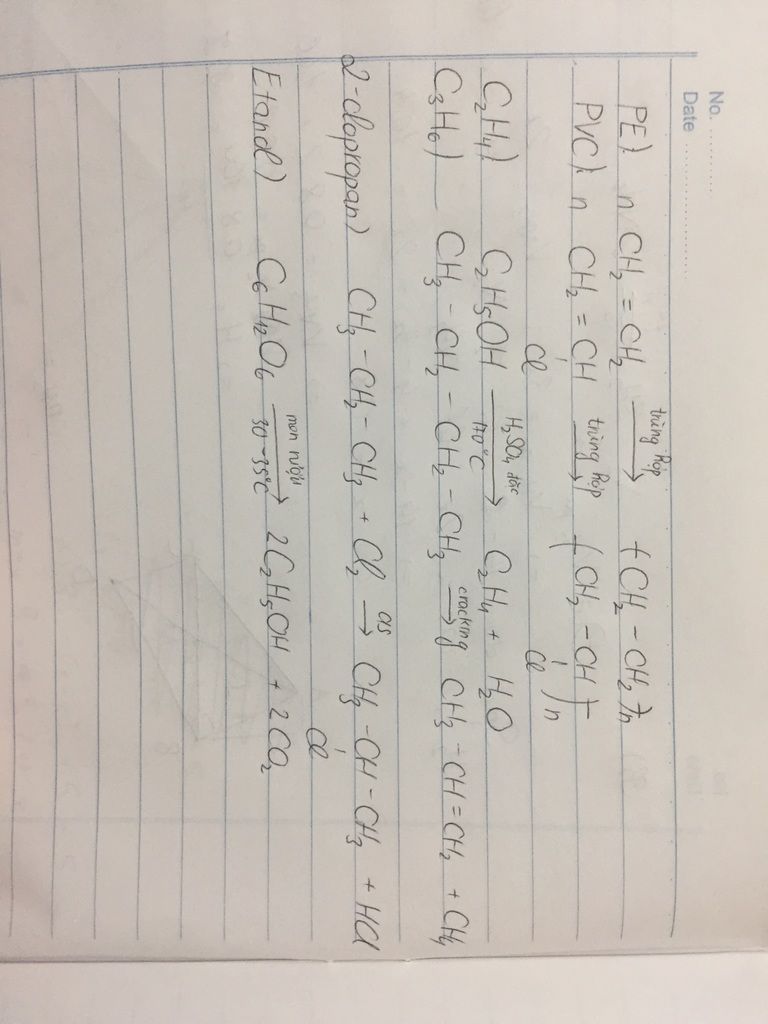 No. ............
Date ............
PE) n CH₂ = CH₂ —trùng hợp→ (CH₂ - CH₂)n
PVC) n CH₂ = CH —trùng hợp→ (CH₂ - CH)n
Cl Cl
C₂H₄) C₂H₅OH —H₂SO₄ đặc 170°C→ C₂H₄ + H₂O
C₃H₆) CH₃ - CH₂ - CH₂ - CH₃ —cracking→ CH₃ - CH = CH₂ + CH₄
2-clopropan) CH₃ - CH₂ - CH₃ + Cl₂ —as→ CH₃ - CH - CH₃ + HCl
Cl
Etanol) C₆H₁₂O₆ —men rượu 30-35°C→ 2C₂H₅OH + 2CO₂